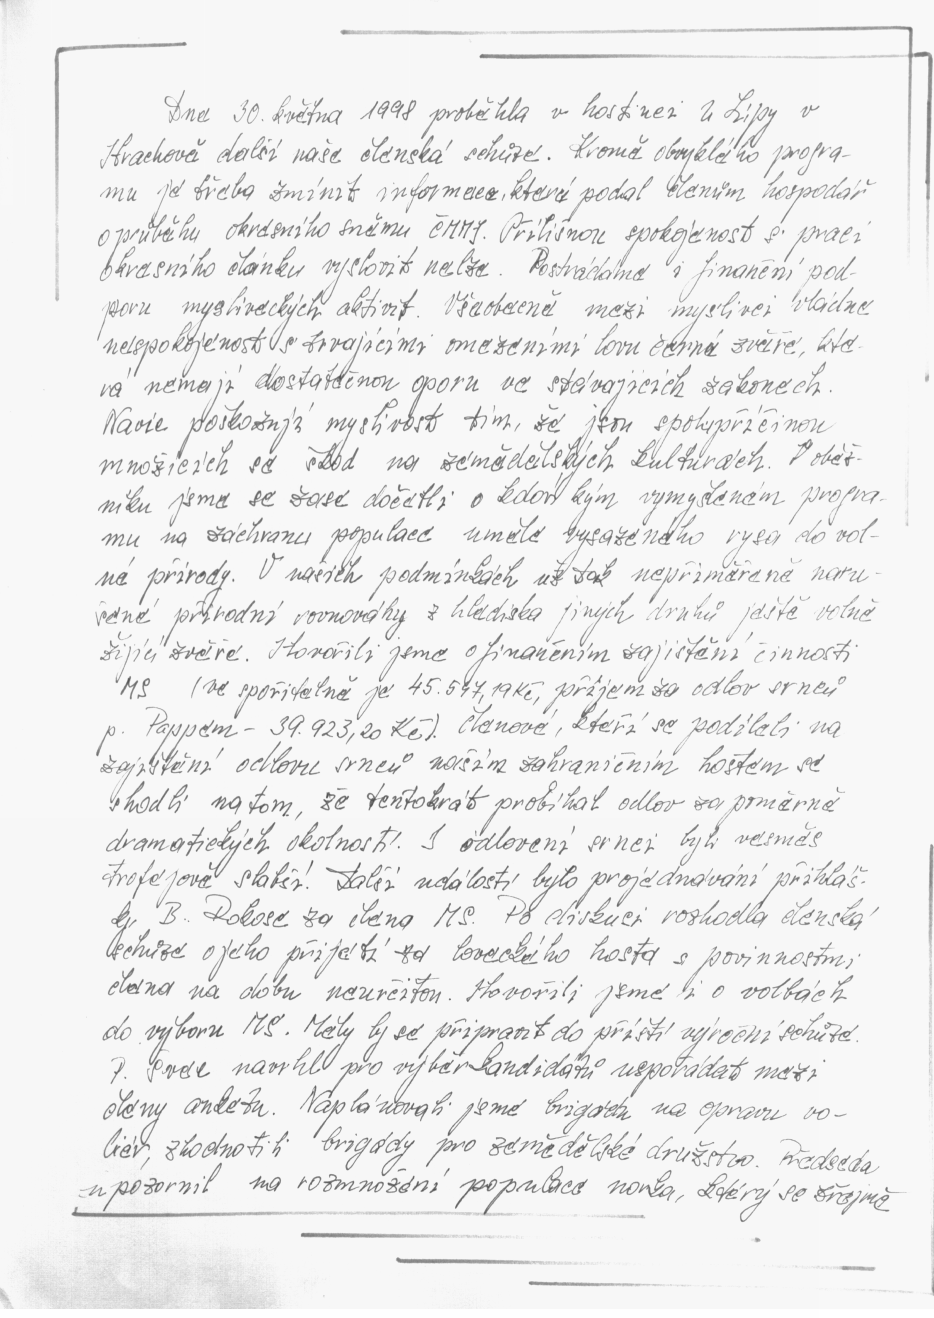 Dne 30. května 1998 proběhla v hostinci U Lípy v
Hrachově další naše členská schůze. Kromě obvyklého progra-
mu je třeba zmínit informace, které podal členům hospodář
o průběhu okresního sněmu ČMMJ. Přílišnou spokojenost s prací
okresního článku vyslovit nelze. Postrádáme i finanční pod-
poru mysliveckých aktivit. Všeobecně mezi myslivci vládne
nespokojenost s trvajícími omezeními lovu černé zvěře, kte-
rá nemají dostatečnou oporu ve stávajících zákonech.
Navíc poškozují myslivost tím, že jsou spolupříčinou
množících se škod na zemědělských kulturách. V oběž-
níku jsme se zase dočetli o ledovským vymyšleném progra-
mu na záchranu populace uměle vysazeného rysa do vol-
né přírody. V našich podmínkách už tak nepřiměřeně naru-
šené přírodní rovnováhy z hlediska jiných druhů ještě volně
žijící zvěře. Hovořili jsme o finančním zajištění činnosti
MS (ve spořitelně je 45.547,19 Kč, příjem za odlov srnců
p. Pappem - 39.923,20 Kč). Členové, kteří se podíleli na
zajištění odlovu srnců našim zahraničním hostem se
shodli na tom, že tentokrát probíhal odlov za poměrně
dramatických okolností. I odlovení srnci byli vesměs
trofejově slabší. Další událostí bylo projednávání přihláš-
ky B. Rokose za člena MS. Po diskuci rozhodla členská
schůze o jeho přijetí za loveckého hosta s povinnostmi
člena na dobu neurčitou. Hovořili jsme i o volbách
do výboru MS. Měly by se připravit do příští výroční schůze.
P. Švec navrhl pro výběr kandidátů uspořádat mezi
členy anketu. Naplánovali jsme brigádu na opravu vo-
liér, zhodnotili brigády pro zemědělské družstvo. Předseda
upozornil na rozmnožení populace norka, který se zřejmě